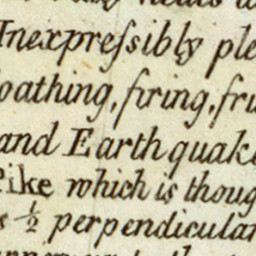 Inexpreſsibly ple
oathing, firing, fru
and Earthquake
Pike which is thoug
s ½ perpendicular